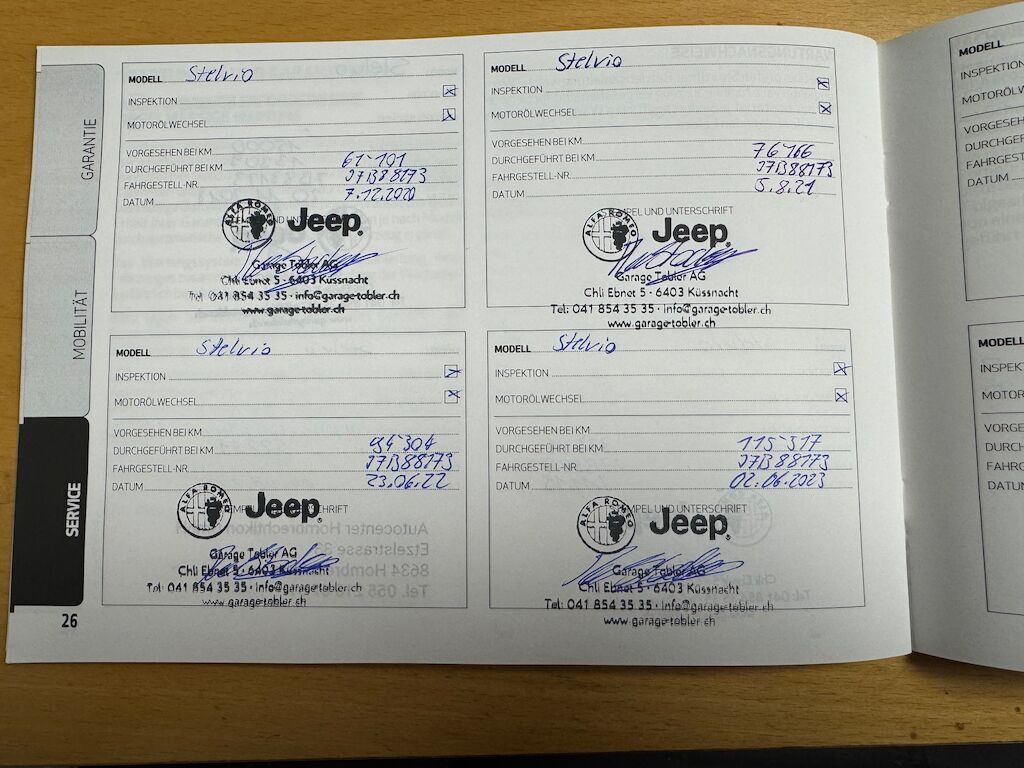 GARANTIE
MOBILITÄT
SERVICE
26
MODELL Stelvio
INSPEKTION
MOTORÖLWECHSEL
VORGESEHEN BEI KM
DURCHGEFÜHRT BEI KM 61'101
FAHRGESTELL-NR. J7B88173
DATUM 7.12.2020
ALFA ROMEO
Jeep®
Garage Tobler AG
Chli Ebnet 5 · 6403 Küssnacht
Tel: 041 854 35 35 · info@garage-tobler.ch
www.garage-tobler.ch
MODELL Stelvio
INSPEKTION
MOTORÖLWECHSEL
VORGESEHEN BEI KM
DURCHGEFÜHRT BEI KM 76'166
FAHRGESTELL-NR. J7B88173
DATUM 5.8.21
STEMPEL UND UNTERSCHRIFT
ALFA ROMEO
Jeep®
Garage Tobler AG
Chli Ebnet 5 · 6403 Küssnacht
Tel: 041 854 35 35 · info@garage-tobler.ch
www.garage-tobler.ch
MODELL Stelvio
INSPEKTION
MOTORÖLWECHSEL
VORGESEHEN BEI KM
DURCHGEFÜHRT BEI KM 94'304
FAHRGESTELL-NR. J7B88173
DATUM 23.06.22
STEMPEL UND UNTERSCHRIFT
ALFA ROMEO
Jeep®
Garage Tobler AG
Chli Ebnet 5 · 6403 Küssnacht
Tel: 041 854 35 35 · info@garage-tobler.ch
www.garage-tobler.ch
MODELL Stelvio
INSPEKTION
MOTORÖLWECHSEL
VORGESEHEN BEI KM
DURCHGEFÜHRT BEI KM 115'317
FAHRGESTELL-NR. J7B88173
DATUM 02.06.2023
STEMPEL UND UNTERSCHRIFT
ALFA ROMEO
Jeep®
Garage Tobler AG
Chli Ebnet 5 · 6403 Küssnacht
Tel: 041 854 35 35 · info@garage-tobler.ch
www.garage-tobler.ch
MODELL
INSPEKTION
DATUM
MODELL